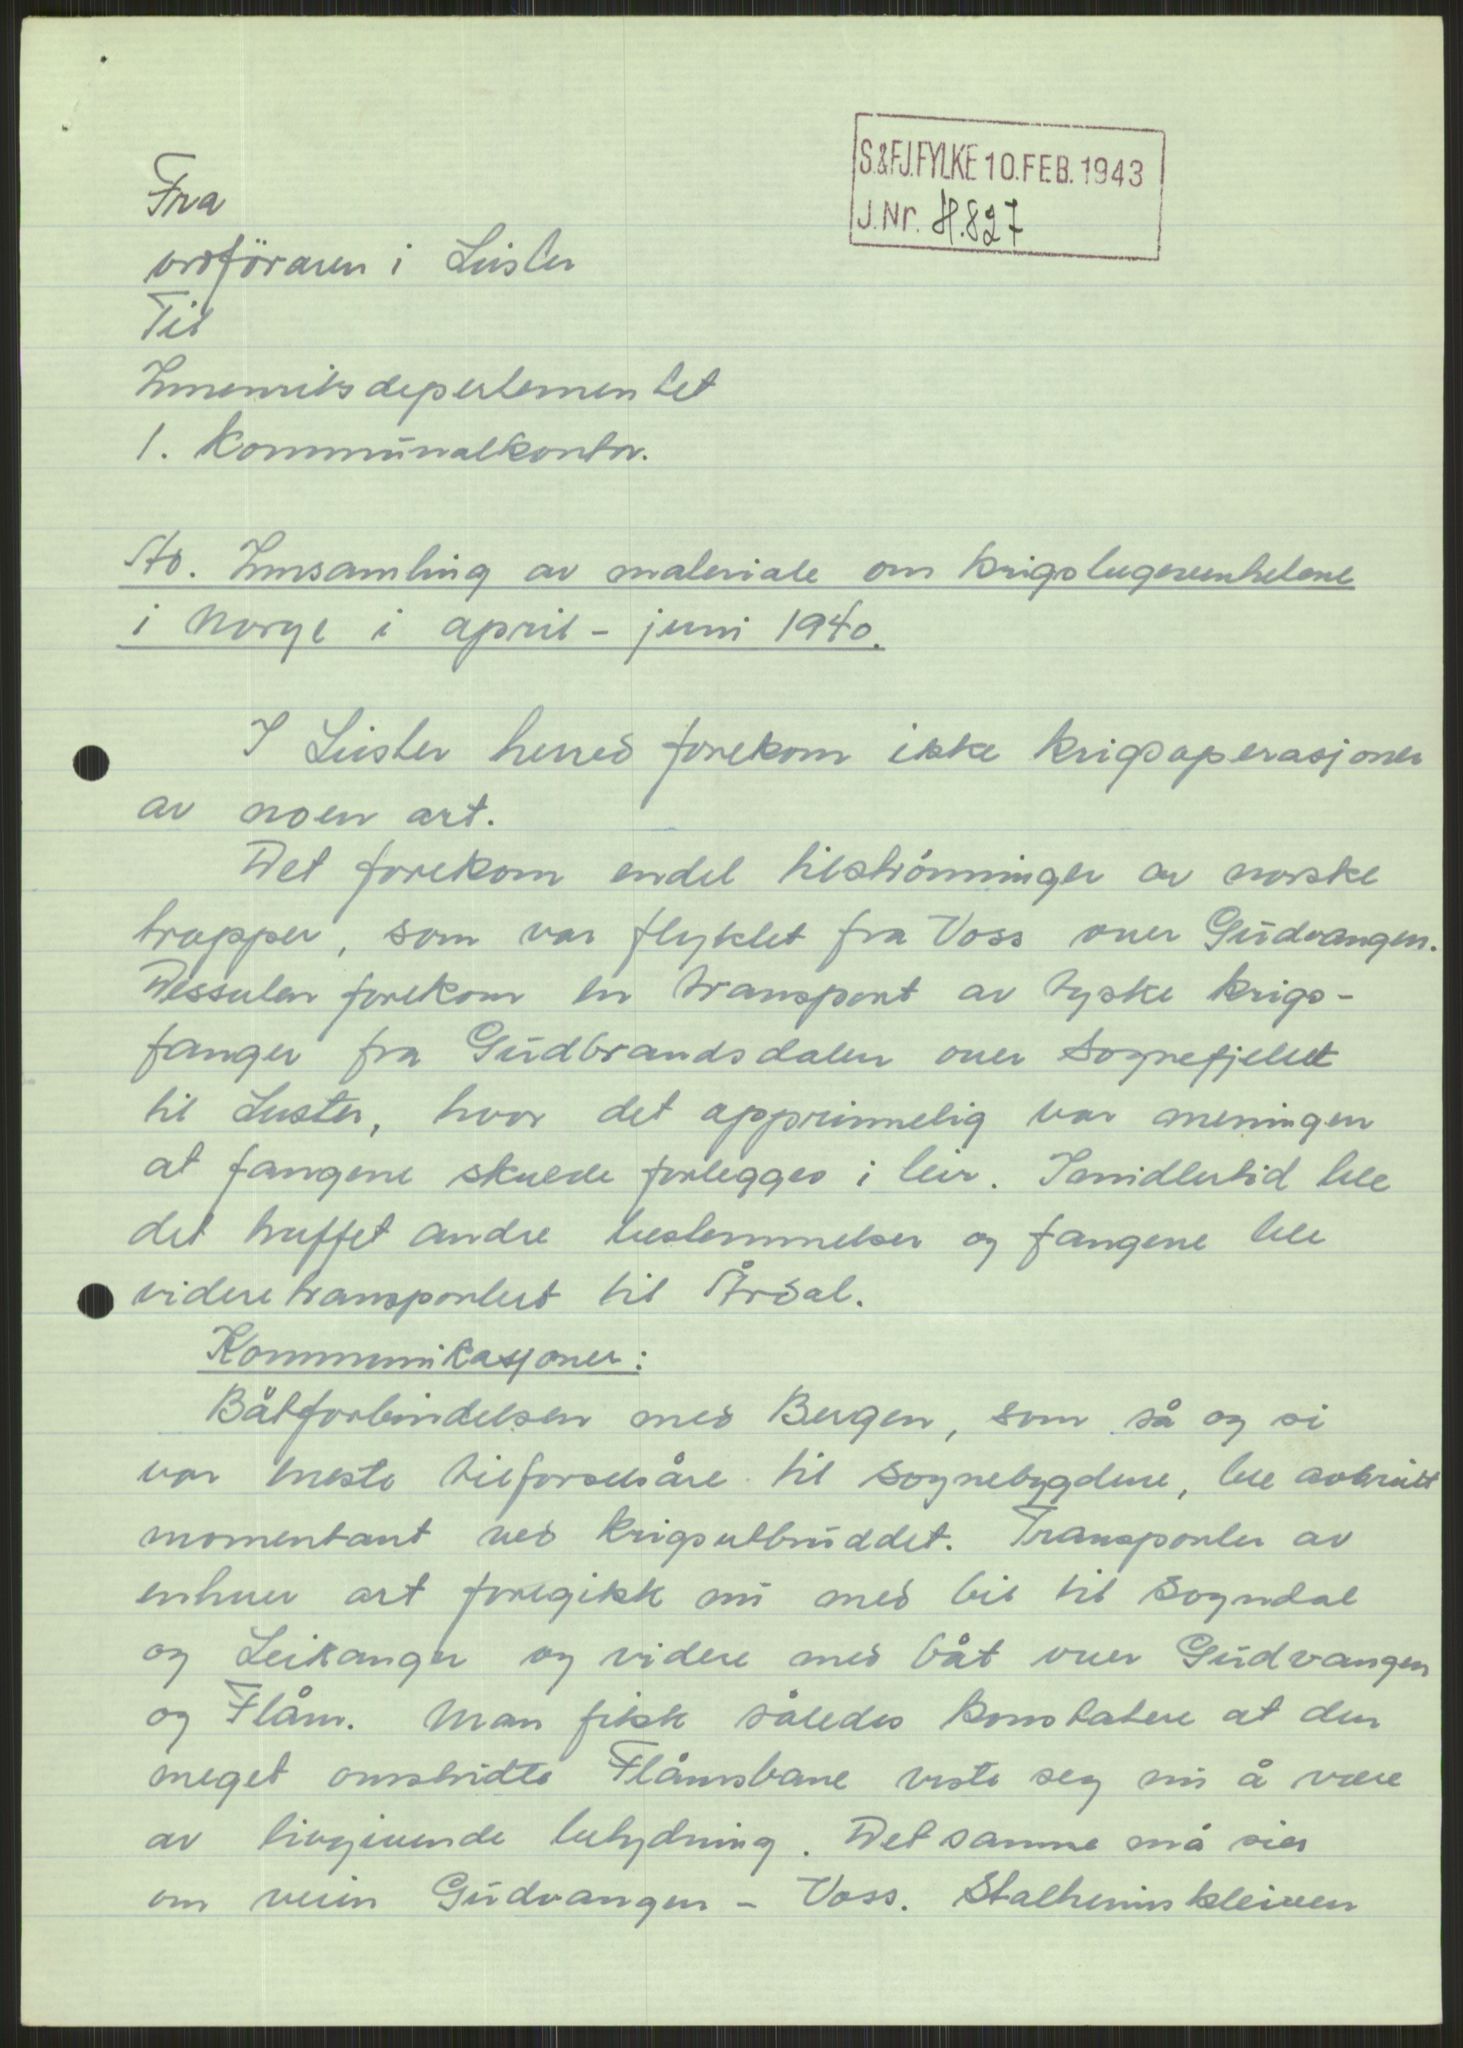 S.&FJ.FYLKE 10.FEB.1943
J.Nr. H.827
Fra
ordföraren i Luster
Til
Innenriksdepartementet
1. Kommunalkontor.
Ad. Innsamling av materiale om krigsbegivenhetene
i Norge i april - juni 1940.
I Luster herred forekom ikke krigsoperasjoner
av noen art.
Det forekom endel tilströmninger av norske
tropper, som var flyktet fra Voss over Gudvangen.
Dessuten forekom en transport av tyske krigs-
fanger fra Gudbrandsdalen over Sognefjellet
til Luster, hvor det opprinnelig var meningen
at fangene skulde forlegges i leir. Imidlertid ble
det truffet andre bestemmelser og fangene ble
videretransportert til Årdal.
Kommunikasjoner:
Båtforbindelsen med Bergen, som så og si
var eneste tilforselsåre til Sognebygdene, ble avbrutt
momentant ved krigsutbruddet. Transporter av
enhver art foregikk nu med bil til Sogndal
og Leikanger og videre med båt over Gudvangen
og Flåm. Man fikk således konstatere at den
meget omstridte Flåmsbane viste seg nu å være
av livgivende betydning. Det samme må sies
om veien Gudvangen - Voss. Stalheimskleiven